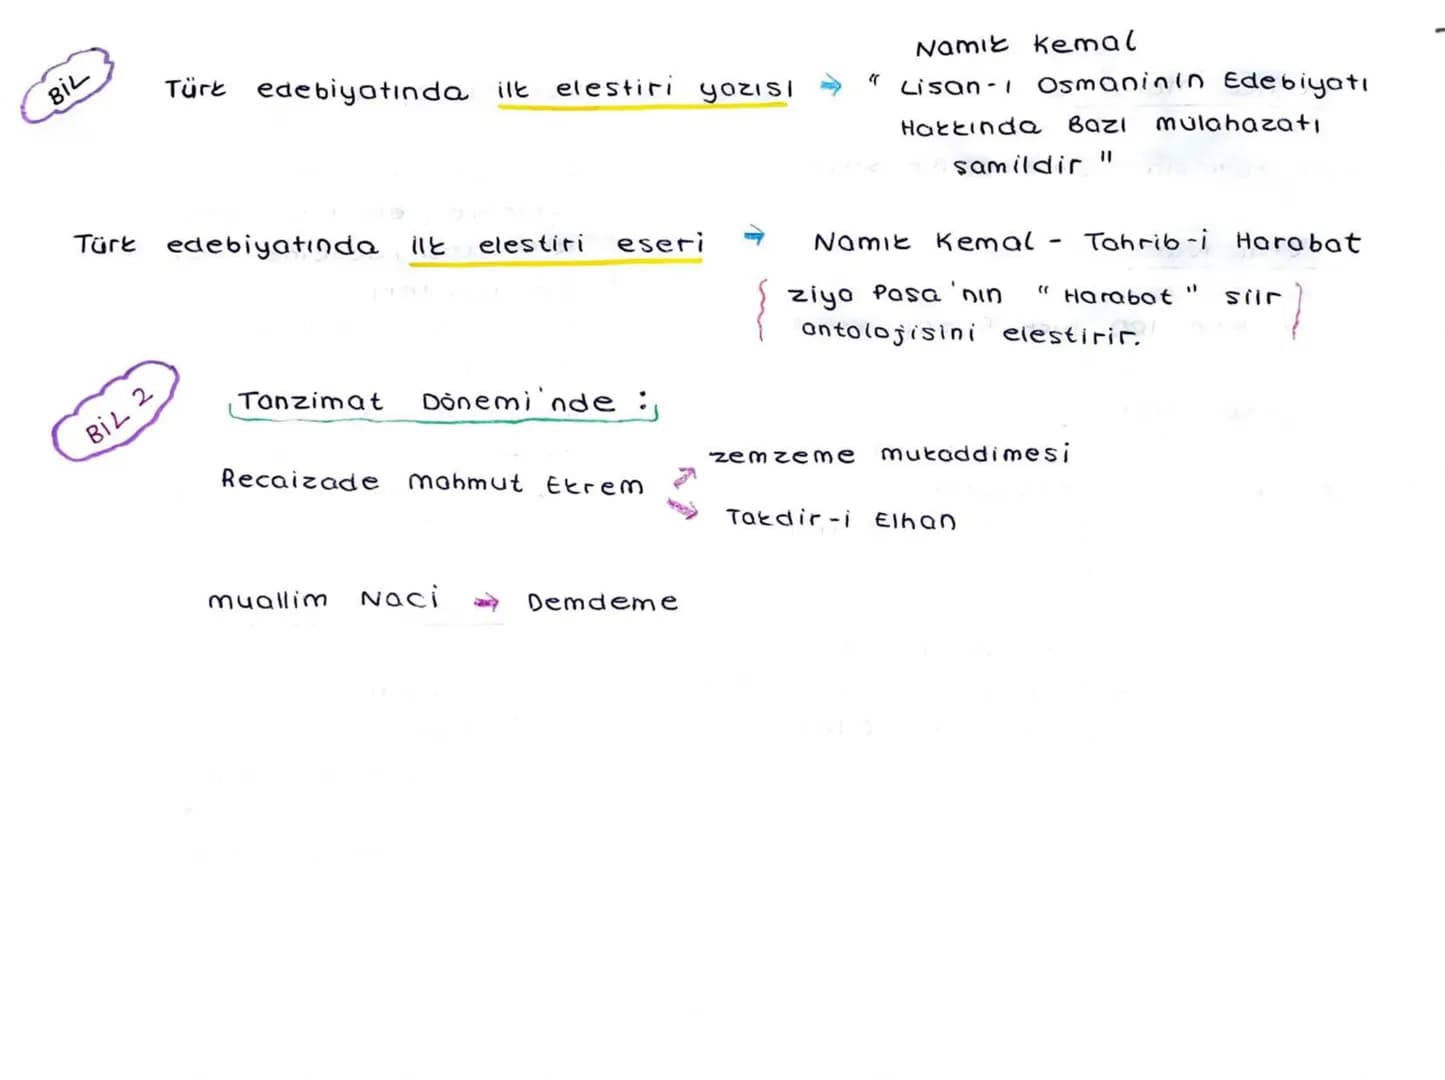 BİL
Namık Kemal
Türk edebiyatında ilk elestiri yazısı → " Lisan-ı Osmaninin Edebiyatı
Hakkında Bazı mülahazatı
şamildir "
Türk edebiyatında ilk elestiri eseri → Namık Kemal - Tahrib-i Harabat
{ ziya Pasa'nın " Harabat " siir }
antolojisini elestirir.
BİL 2
Tanzimat Dönemi'nde :
zemzeme mukaddimesi
Recaizade mahmut Ekrem
Takdir-i Elhan
muallim Naci → Demdeme